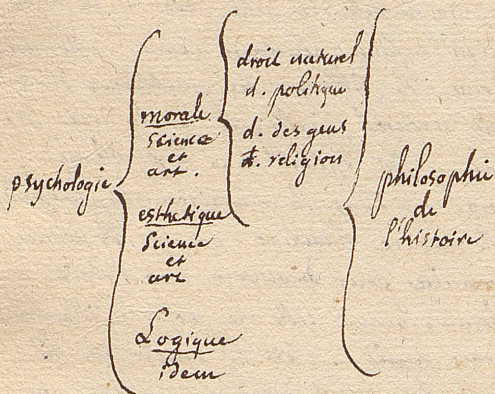 psychologie
morale
science
et
art.
esthetique
Science
et
art
Logique
idem
droit naturel
d. politique
d. des gens
religion
philosophie
de
l'histoire